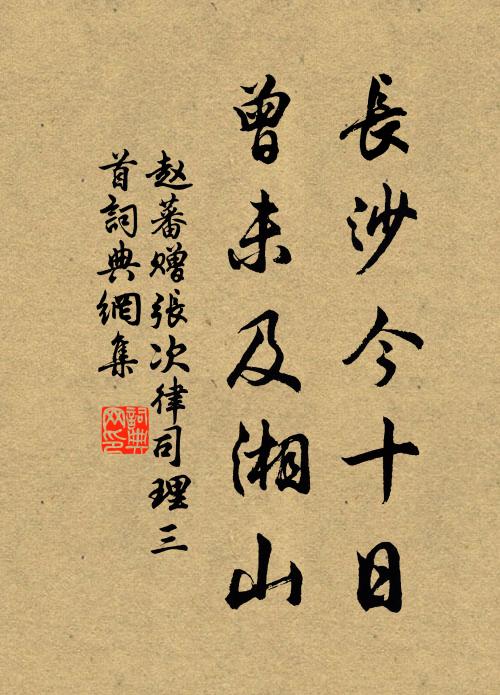 長沙今十日
曾未及湘山
赵蕃赠張次律司理三
首詞典網集
詞典网印